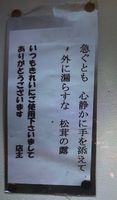 急ぐとも　心静かに手を添えて
外に漏らすな　松茸の露
いつもきれいにご使用下さいまして
ありがとうございます
店主